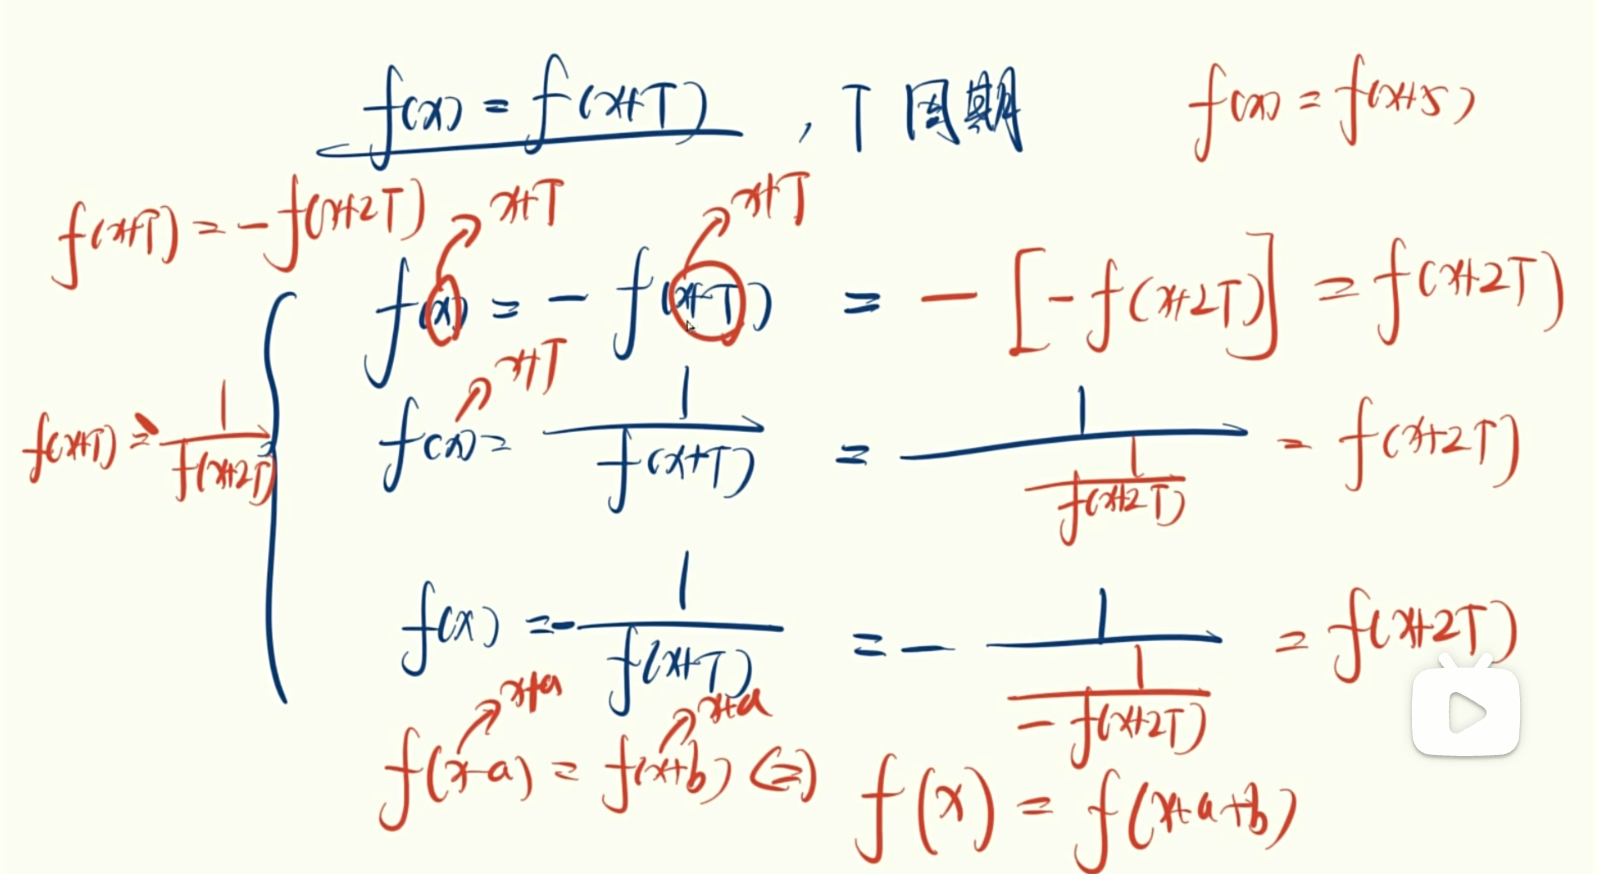 f(x) = f(x+T) , T 周期 f(x) = f(x+5)
f(x+T) = -f(x+2T) x+T x+T
f(x) = - f(x+T) = - [- f(x+2T)] = f(x+2T)
x+T
f(x+T) = 1/f(x+2T) f(x) = 1/f(x+T) = 1/(1/f(x+2T)) = f(x+2T)
f(x) = - 1/f(x+T) = - 1/(1/-f(x+2T)) = f(x+2T)
x+a x+a
f(x-a) = f(x+b) (=) f(x) = f(x+a+b)